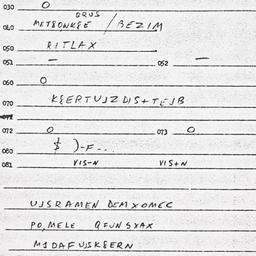 030 O
ORUS
040 METBONKEE / BEZIM
050 RITLAX
051 — 052 —
060 O
070 KEERTUJZWS+TEJB
072 O 073 O
080 $ )-F-...
081 VIS-N VIS+N
UJSRAMEN DEMXOMEC
PO,MELE QFUNSYAX
M1DAFUJSKEERN